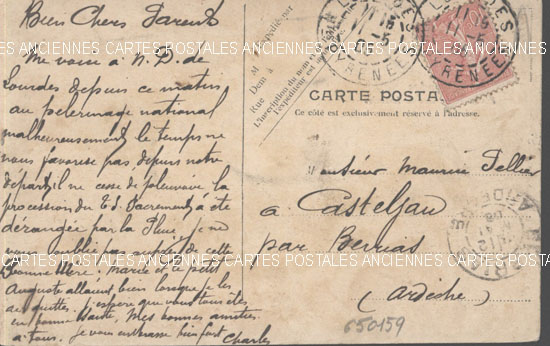 Bien Chers Parents
Me voici à N. D. de
Lourdes depuis ce matin
au pelerinage national
malheureusement le temps ne
nous favorise pas depuis notre
départ il ne cesse de pleuvoir la
procession du T. S. Sacrement a été
dérangée par la Pluie, je ne
vous oublie pas auprès de cette
Bonne Mère, Marie et ce petit
Auguste allaient bien lorsque je les
ai quittés, j'espère que vous tous êtes
en bonne santé, Mes bonnes amitiés
à tous. Je vous embrasse bien fort
Charles
M
Dem à
Rue
L'inscription du nom
l'expéditeur est
CARTE POSTA
Ce côté est exclusivement réservé à l'adresse.
Monsieur Maurice Tellier
à Casteljau
par Berrias
(Ardèche)
650159
PYRENEES
BERRIAS
ARDECHE
ANCIENNES CARTES POSTALES ANCIENNES CARTES POSTALES